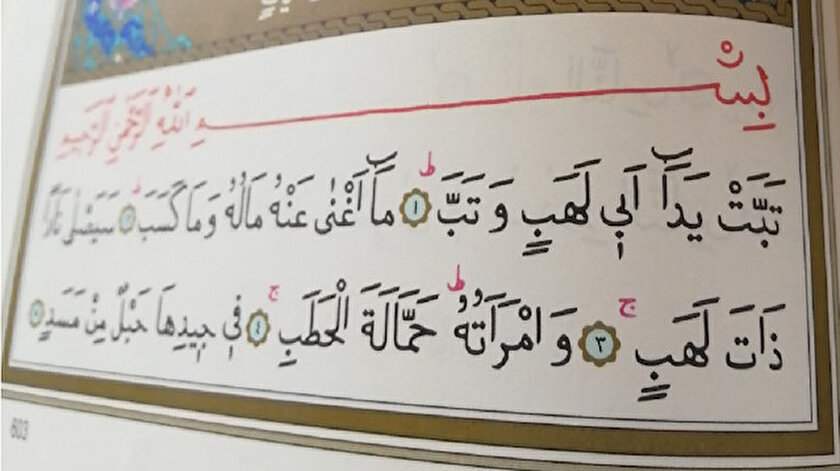 بِسْمِ اللّٰهِ الرَّحْمٰنِ الرَّحٖيمِ
تَبَّتْ يَدَٓا اَبٖي لَهَبٍ وَ تَبَّ ﴿١﴾ مَٓا اَغْنٰى عَنْهُ مَالُهُ وَمَا كَسَبَ ﴿٢﴾ سَيَصْلٰى نَارًا
ذَاتَ لَهَبٍ ﴿٣﴾ وَ امْرَاَتُهُ حَمَّالَةَ الْحَطَبِ ﴿٤﴾ فٖي جٖيدِهَا حَبْلٌ مِنْ مَسَدٍ ﴿٥﴾
603